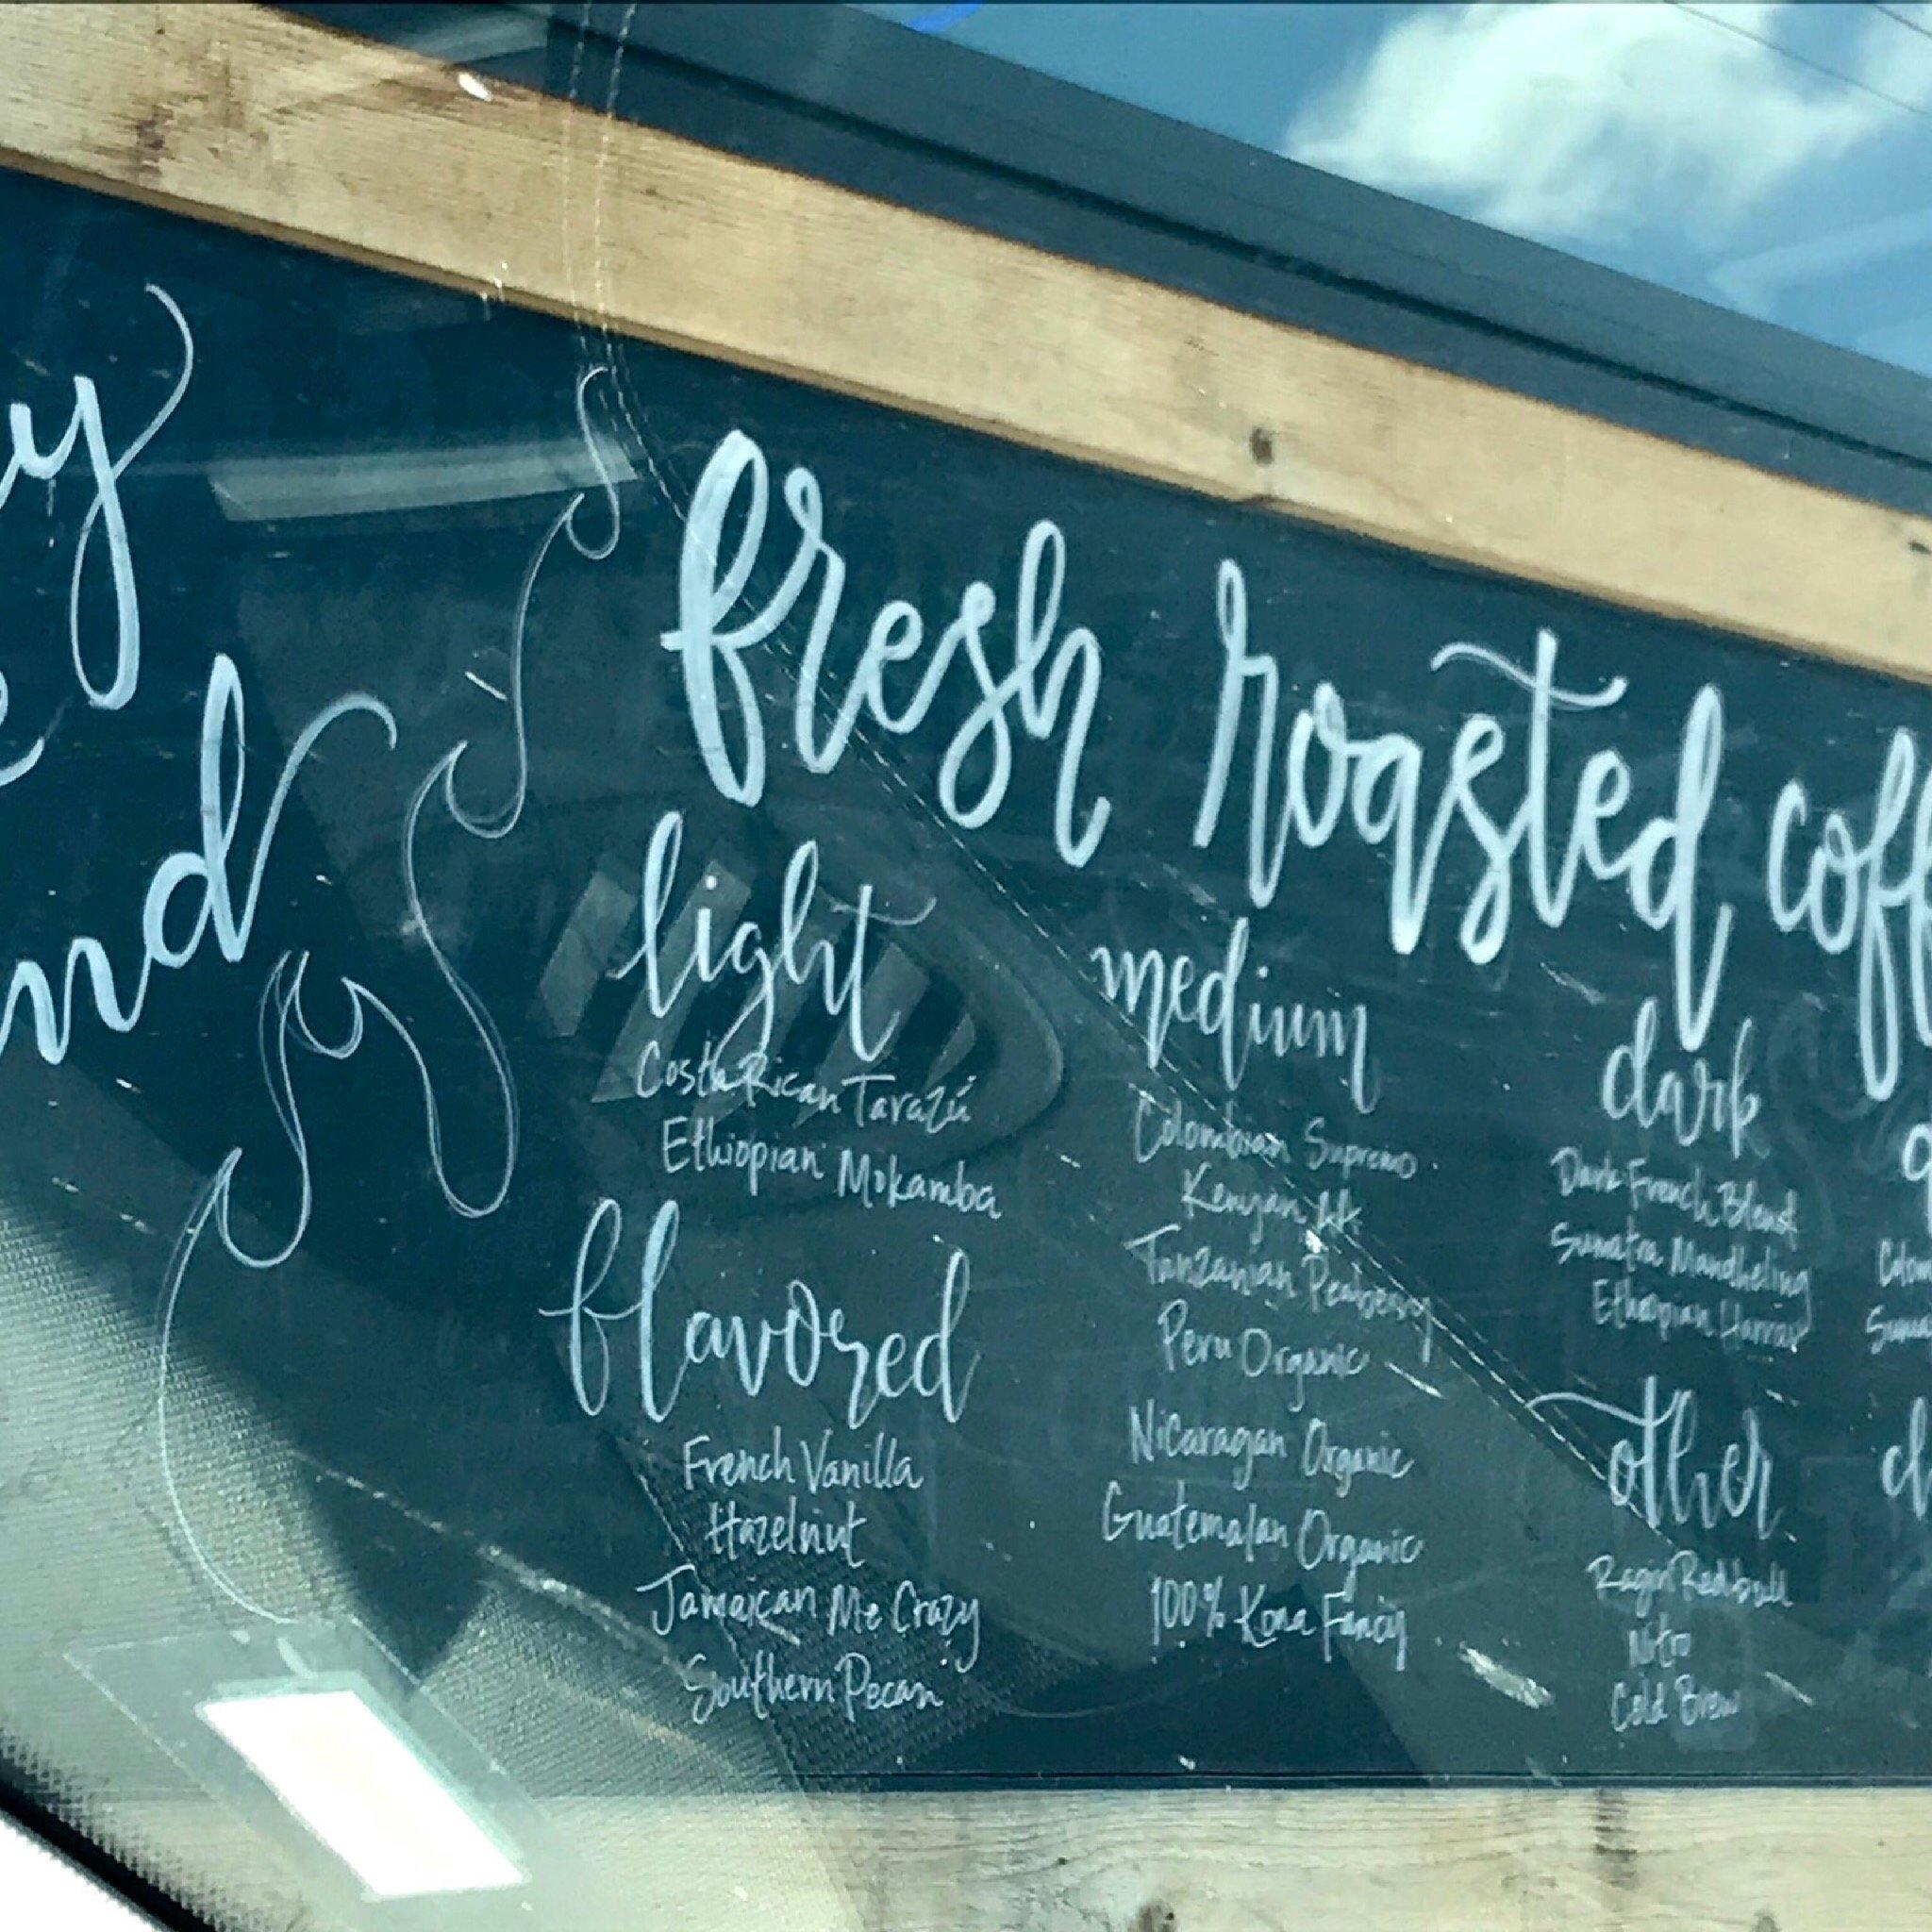 y
nd
fresh roasted coff
light
Costa Rican Tarazú
Ethiopian Mokamba
flavored
French Vanilla
Hazelnut
Jamaican Me Crazy
Southern Pecan
medium
Colombian Supremo
Kenyan AA
Tanzanian Peaberry
Peru Organic
Nicaragan Organic
Guatemalan Organic
100% Kona Fancy
dark
Dark French Blend
Sumatra Mandheling
Ethiopian Harrar
other
Ragin Redbull
Nitro
Cold Brew
Colom
Suma
d